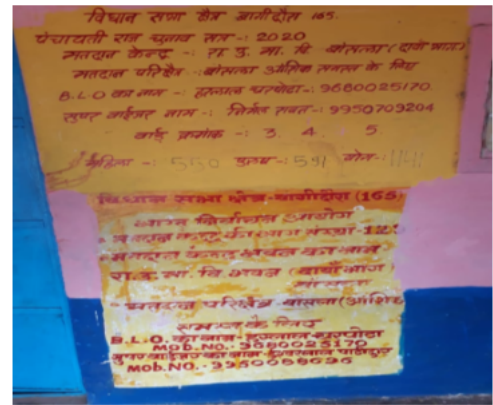 विधान सभा क्षेत्र बागीदौरा 165.
पंचायती राज चुनाव सत्र -: 2020
मतदान केन्द्र -: रा. उ. मा. वि बोसला (दायां भाग)
मतदान परिक्षेत्र -: बोसला आंशिक समस्त के लिए
B.L.O का नाम -: हरलाल चरपोटा -: 9680025170
सुपर वाईजर नाम -: निर्मल रावत -: 9950709204
वार्ड क्रमांक -: 3. 4. 5
महिला -: 550 पुरुष -: 591 योग -: 1141
विधान सभा क्षेत्र - बागीदौरा (165)
भारत निर्वाचन आयोग
मतदान केन्द्र की भाग संख्या - 12
मतदान केन्द्र भवन का नाम
रा. उ. मा. वि भवन (बायां भाग)
मतदान परिक्षेत्र - बोसला (आंशिक
समस्त के लिए
B.L.O. का नाम - हरलाल चरपोटा
MOB.NO. - 9680025170
सुपर वाईजर का नाम - ईश्वरलाल पाटीदार
MOB.NO. -